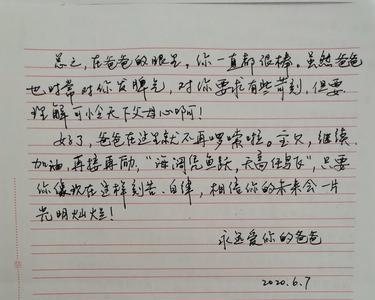 总之，在爸爸的眼里，你一直都很棒。虽然爸爸
也时常对你发脾气，对你要求有些苛刻，但要
理解可怜天下父母心啊！
好了，爸爸在这里就不再啰嗦啦。宝贝，继续
加油，再接再励，“海阔凭鱼跃，天高任鸟飞”，只要
你像现在这样刻苦、自律，相信你的未来会一片
光明灿烂！
永远爱你的爸爸
2020.6.7